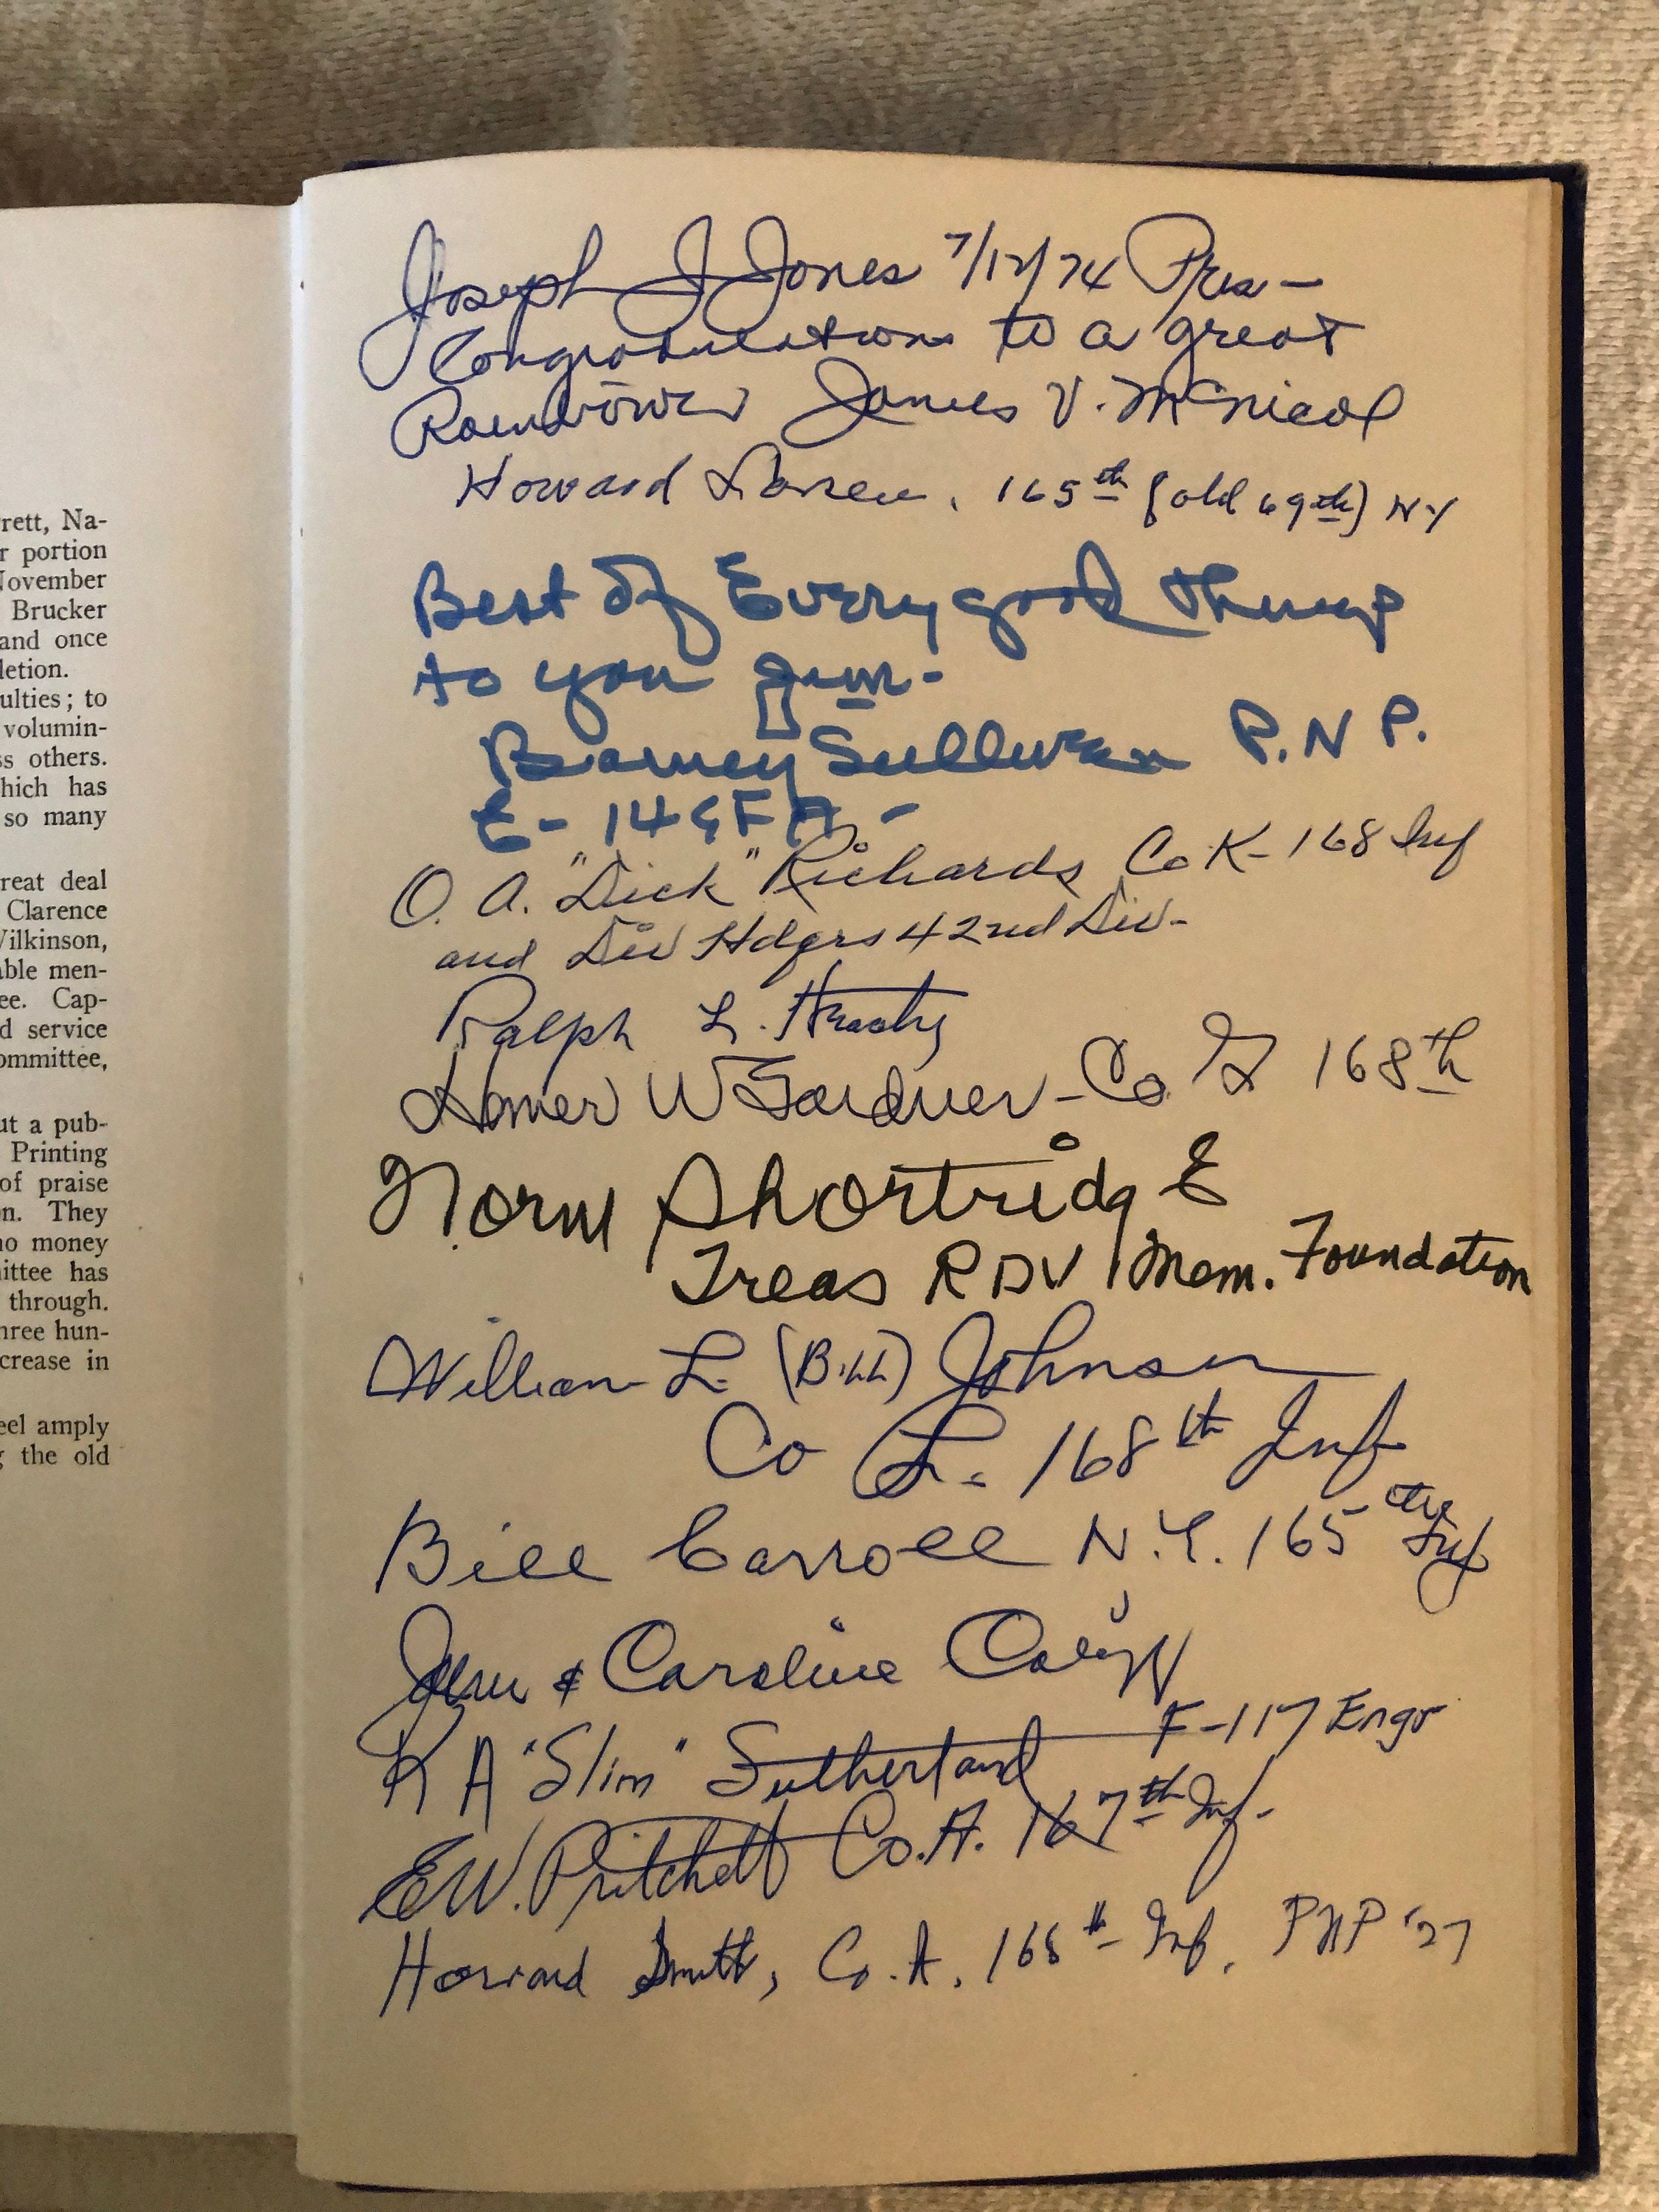 rett, Na-
r portion
November
Brucker
and once
letion.
ulties; to
volumin-
ss others.
hich has
so many
reat deal
Clarence
Wilkinson,
able men-
ee. Cap-
d service
ommittee,
ut a pub-
Printing
of praise
n. They
no money
ittee has
through.
hree hun-
crease in
eel amply
g the old
Joseph J Jones 7/12/74 Pres-
Congratulations to a great
Rainbower James V. McNicol
Howard 165th (old 69th) NY
Best of Every good things
to you Jim-
Barney Sullivan P.N.P.
E-149FA-
O. A. "Dick" Richards Co K-168 Inf
and Div Hdqrs 42nd Div-
Ralph L.
Homer W Gardner-Co G 168th
Norm Shortridge
Treas RDV Mem. Foundation
William L. (Bill) Johnson
Co L. 168th Inf
Bill Carroll N.Y. 165th Inf
& Caroline
R A "Slim" Sutherland F-117 Engr
E.W. Pritchett Co. A. 167th Inf-
Howard Smith, Co. A. 168th Inf, PNP '27